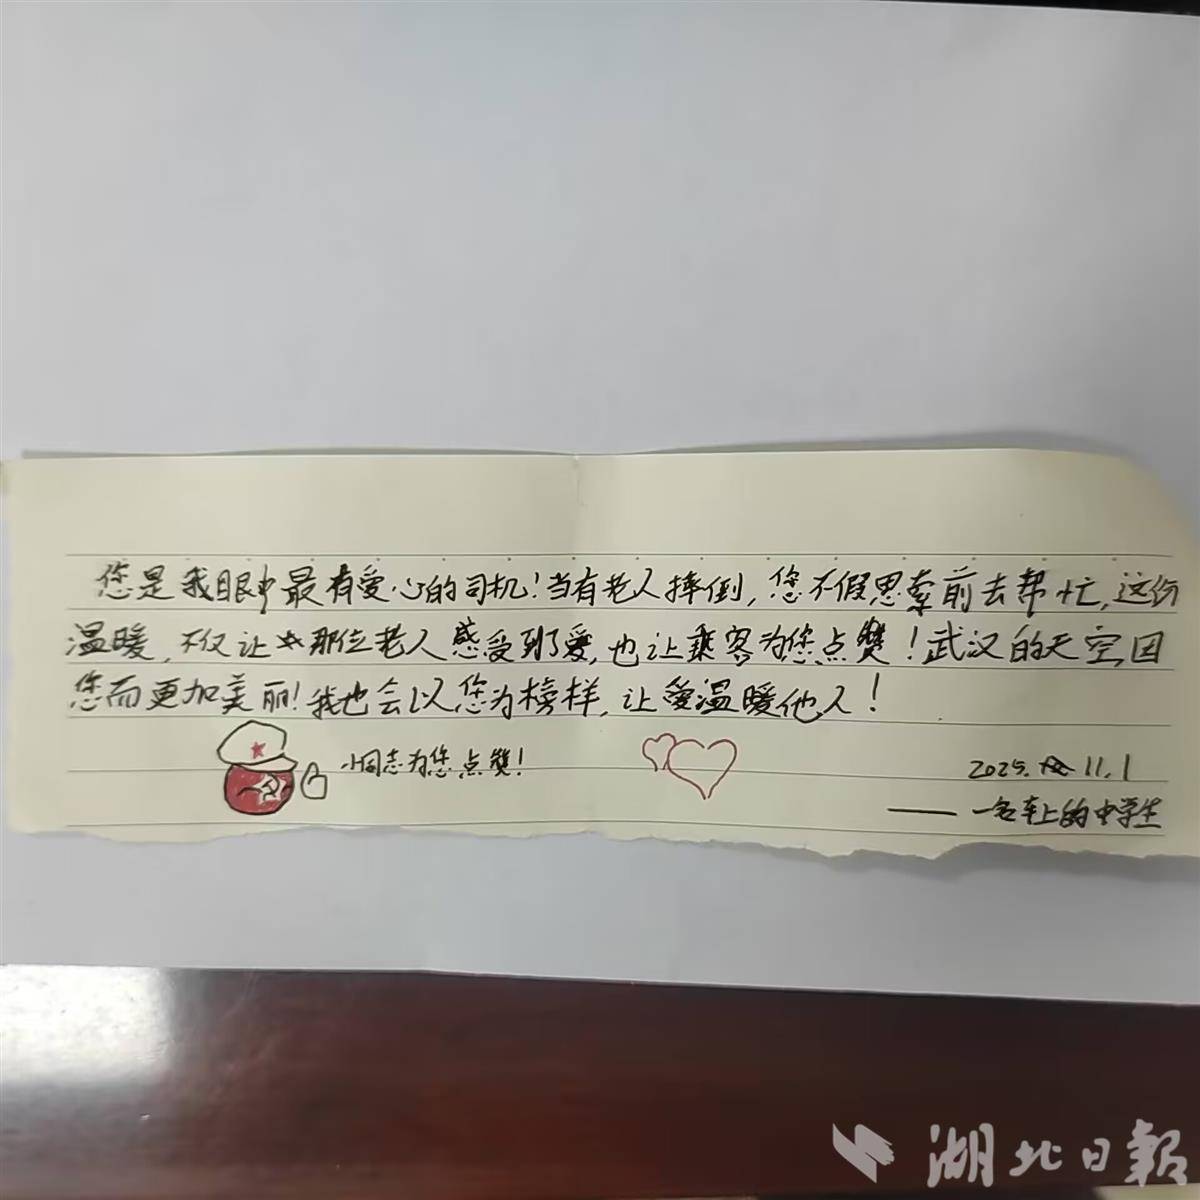 您是我眼中最有爱心的司机！当有老人摔倒，您不假思索前去帮忙，这份
温暖，不仅让那位老人感受到了爱，也让乘客为您点赞！武汉的天空因
您而更加美丽！我也会以您为榜样，让爱温暖他人！
小同志为您点赞！
2025.11.1
——一名车上的中学生
湖北日报